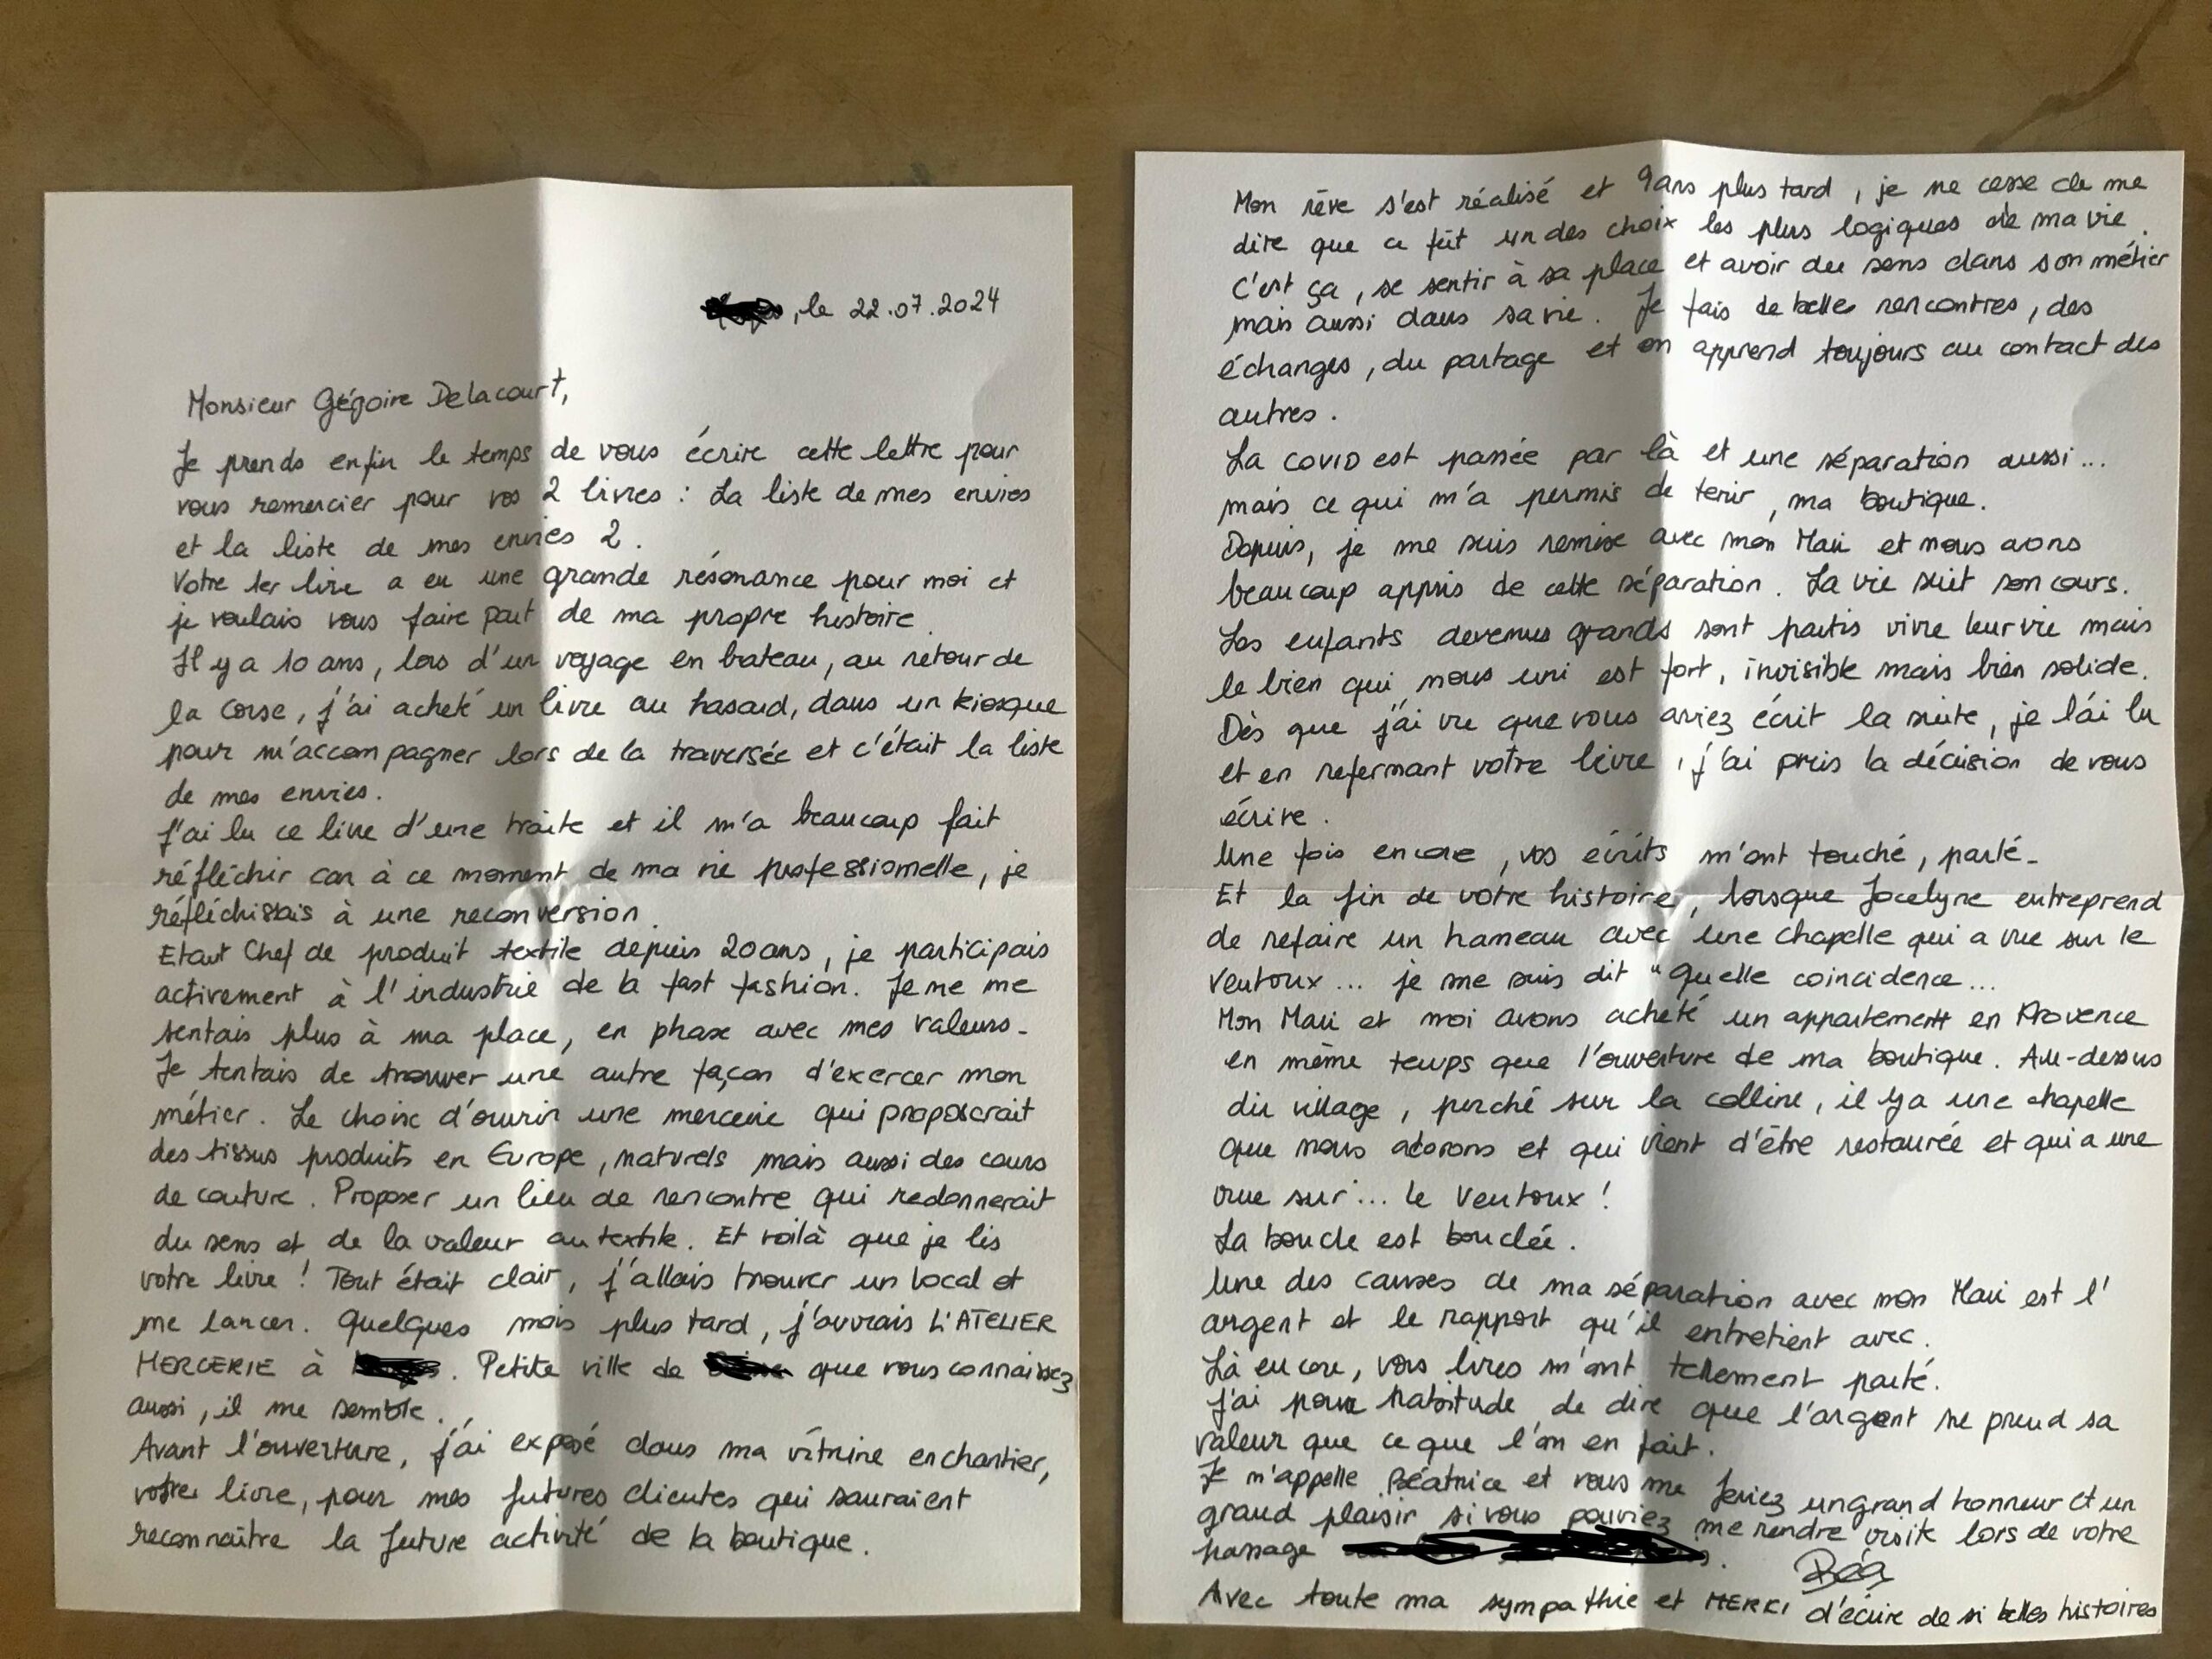 , le 22.07.2024
Monsieur Gégoire Delacourt,
Je prends enfin le temps de vous écrire cette lettre pour
vous remercier pour vos 2 livres : La liste de mes envies
et la liste de mes envies 2.
Votre 1er livre a eu une grande résonance pour moi et
je voulais vous faire part de ma propre histoire.
Il y a 10 ans, lors d'un voyage en bateau, au retour de
la corse, j'ai acheté un livre au hasard, dans un kiosque
pour m'accompagner lors de la traversée et c'était la liste
de mes envies.
J'ai lu ce livre d'une traite et il m'a beaucoup fait
réfléchir car à ce moment de ma vie professionnelle, je
réfléchissais à une reconversion.
Etant Chef de produit textile depuis 20 ans, je participais
activement à l'industrie de la fast fashion. Je ne me
sentais plus à ma place, en phase avec mes valeurs.
Je tentais de trouver une autre façon d'exercer mon
métier. Le choix d'ouvrir une mercerie qui proposerait
des tissus produits en Europe, naturels mais aussi des cours
de couture. Proposer un lieu de rencontre qui redonnerait
du sens et de la valeur au textile. Et voilà que je lis
votre livre ! Tout était clair, j'allais trouver un local et
me lancer. Quelques mois plus tard, j'ouvrais L'ATELIER
MERCERIE à . Petite ville de que vous connaissez
aussi, il me semble.
Avant l'ouverture, j'ai exposé dans ma vitrine en chantier,
votre livre, pour mes futures clientes qui sauraient
reconnaître la future activité de la boutique.
Mon rêve s'est réalisé et 9 ans plus tard, je ne cesse de me
dire que ce fût un des choix les plus logiques de ma vie.
C'est ça, se sentir à sa place et avoir du sens dans son métier
mais aussi dans sa vie. Je fais de belles rencontres, des
échanges, du partage et on apprend toujours au contact des
autres.
La COVID est passée par là et une séparation aussi...
mais ce qui m'a permis de tenir, ma boutique.
Depuis, je me suis remise avec mon Mari et nous avons
beaucoup appris de cette séparation. La vie suit son cours.
Les enfants devenus grands sont partis vivre leur vie mais
le bien qui nous uni est fort, invisible mais bien solide.
Dès que j'ai vu que vous aviez écrit la suite, je l'ai lu
et en refermant votre livre, j'ai pris la décision de vous
écrire.
Une fois encore, vos écrits m'ont touché, parlé.
Et la fin de votre histoire, lorsque Jocelyne entreprend
de refaire un hameau avec une chapelle qui a vue sur le
Ventoux... je me suis dit "Quelle coincidence...
Mon Mari et moi avons acheté un appartement en Provence
en même temps que l'ouverture de ma boutique. Au-dessus
du village, perché sur la colline, il y a une chapelle
que nous adorons et qui vient d'être restaurée et qui a une
vue sur... le Ventoux !
La boucle est bouclée.
Une des causes de ma séparation avec mon Mari est l'
argent et le rapport qu'il entretient avec.
Là encore, vos livres m'ont tellement parlé.
J'ai pour habitude de dire que l'argent ne prend sa
valeur que ce que l'on en fait.
Je m'appelle Béatrice et vous me feriez un grand honneur et un
grand plaisir si vous pouviez me rendre visite lors de votre
passage .
Béa
Avec toute ma sympathie et MERCI d'écrire de si belles histoires